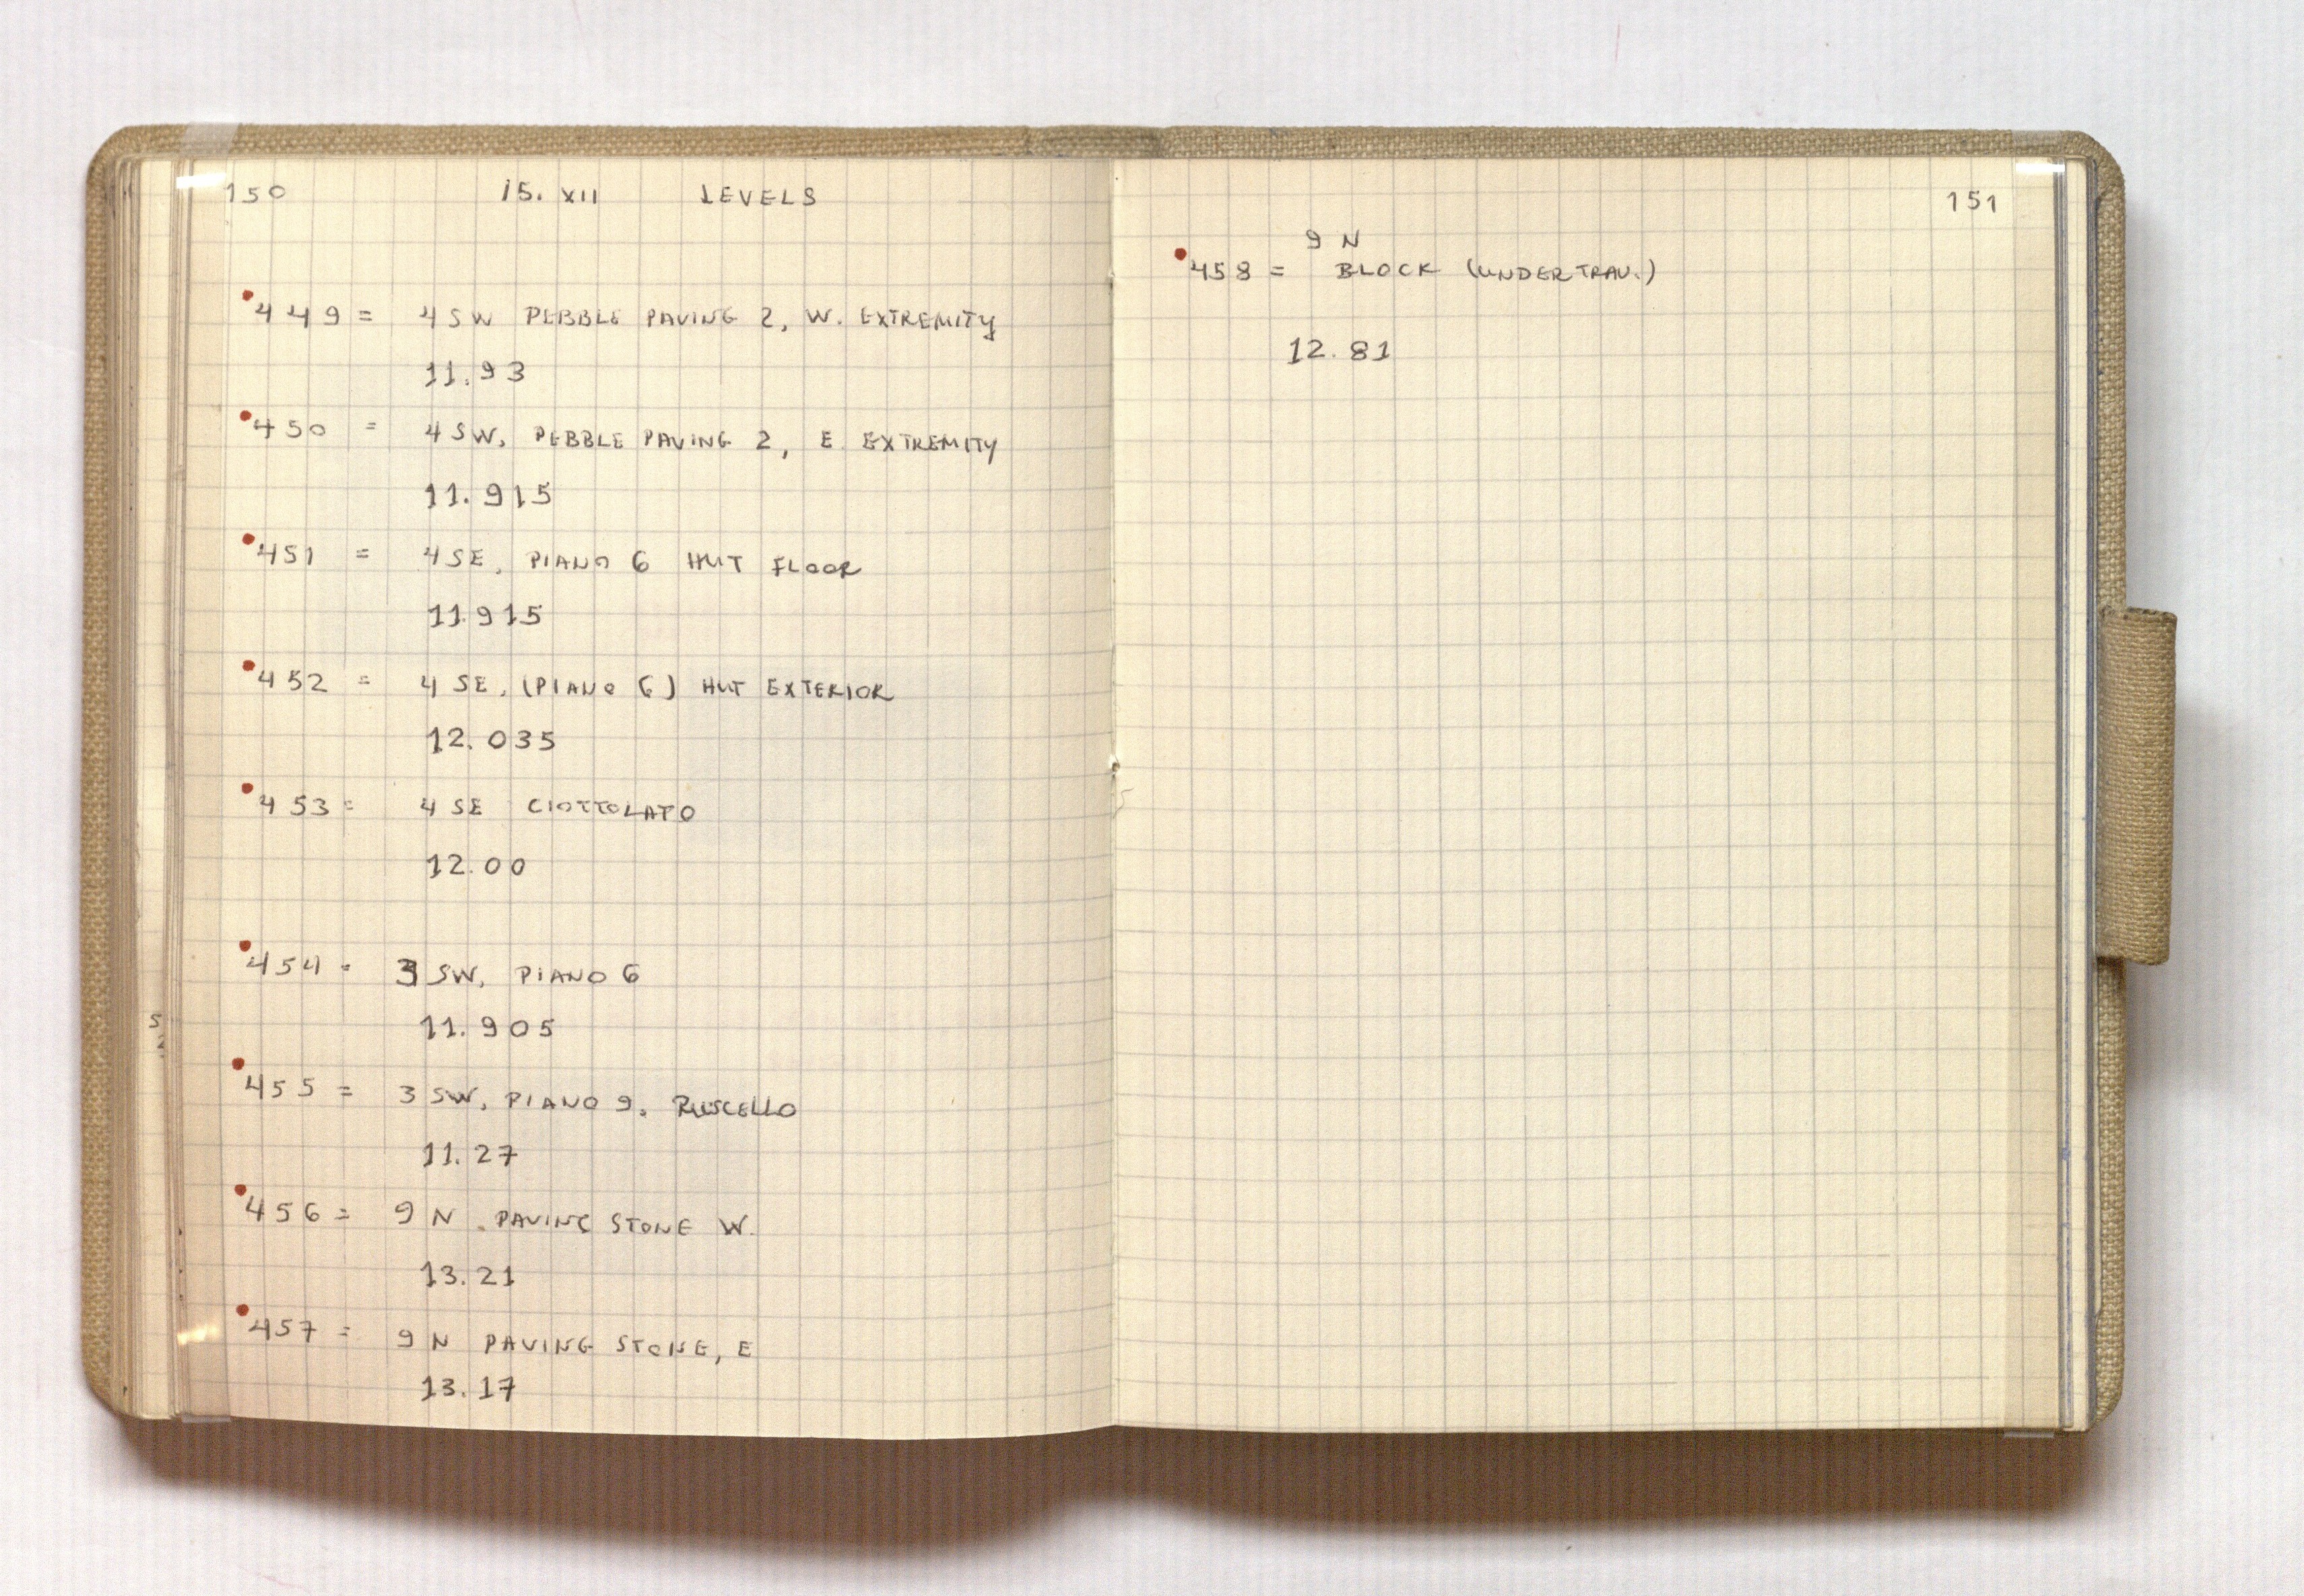 150 15. XII LEVELS
449 = 4 SW PEBBLE PAVING 2, W. EXTREMITY
11.93
450 = 4 SW, PEBBLE PAVING 2, E EXTREMITY
11.915
451 = 4 SE, PIANO 6 HUT FLOOR
11.915
452 = 4 SE, (PIANO 6) HUT EXTERIOR
12.035
453 = 4 SE CIOTTOLATO
12.00
454 = 3 SW, PIANO 6
11.905
455 = 3 SW, PIANO 9. RUSCELLO
11.27
456 = 9 N. PAVING STONE W.
13.21
457 = 9 N PAVING STONE, E
13.17
151
9 N
458 = BLOCK (UNDER TRAV.)
12.81